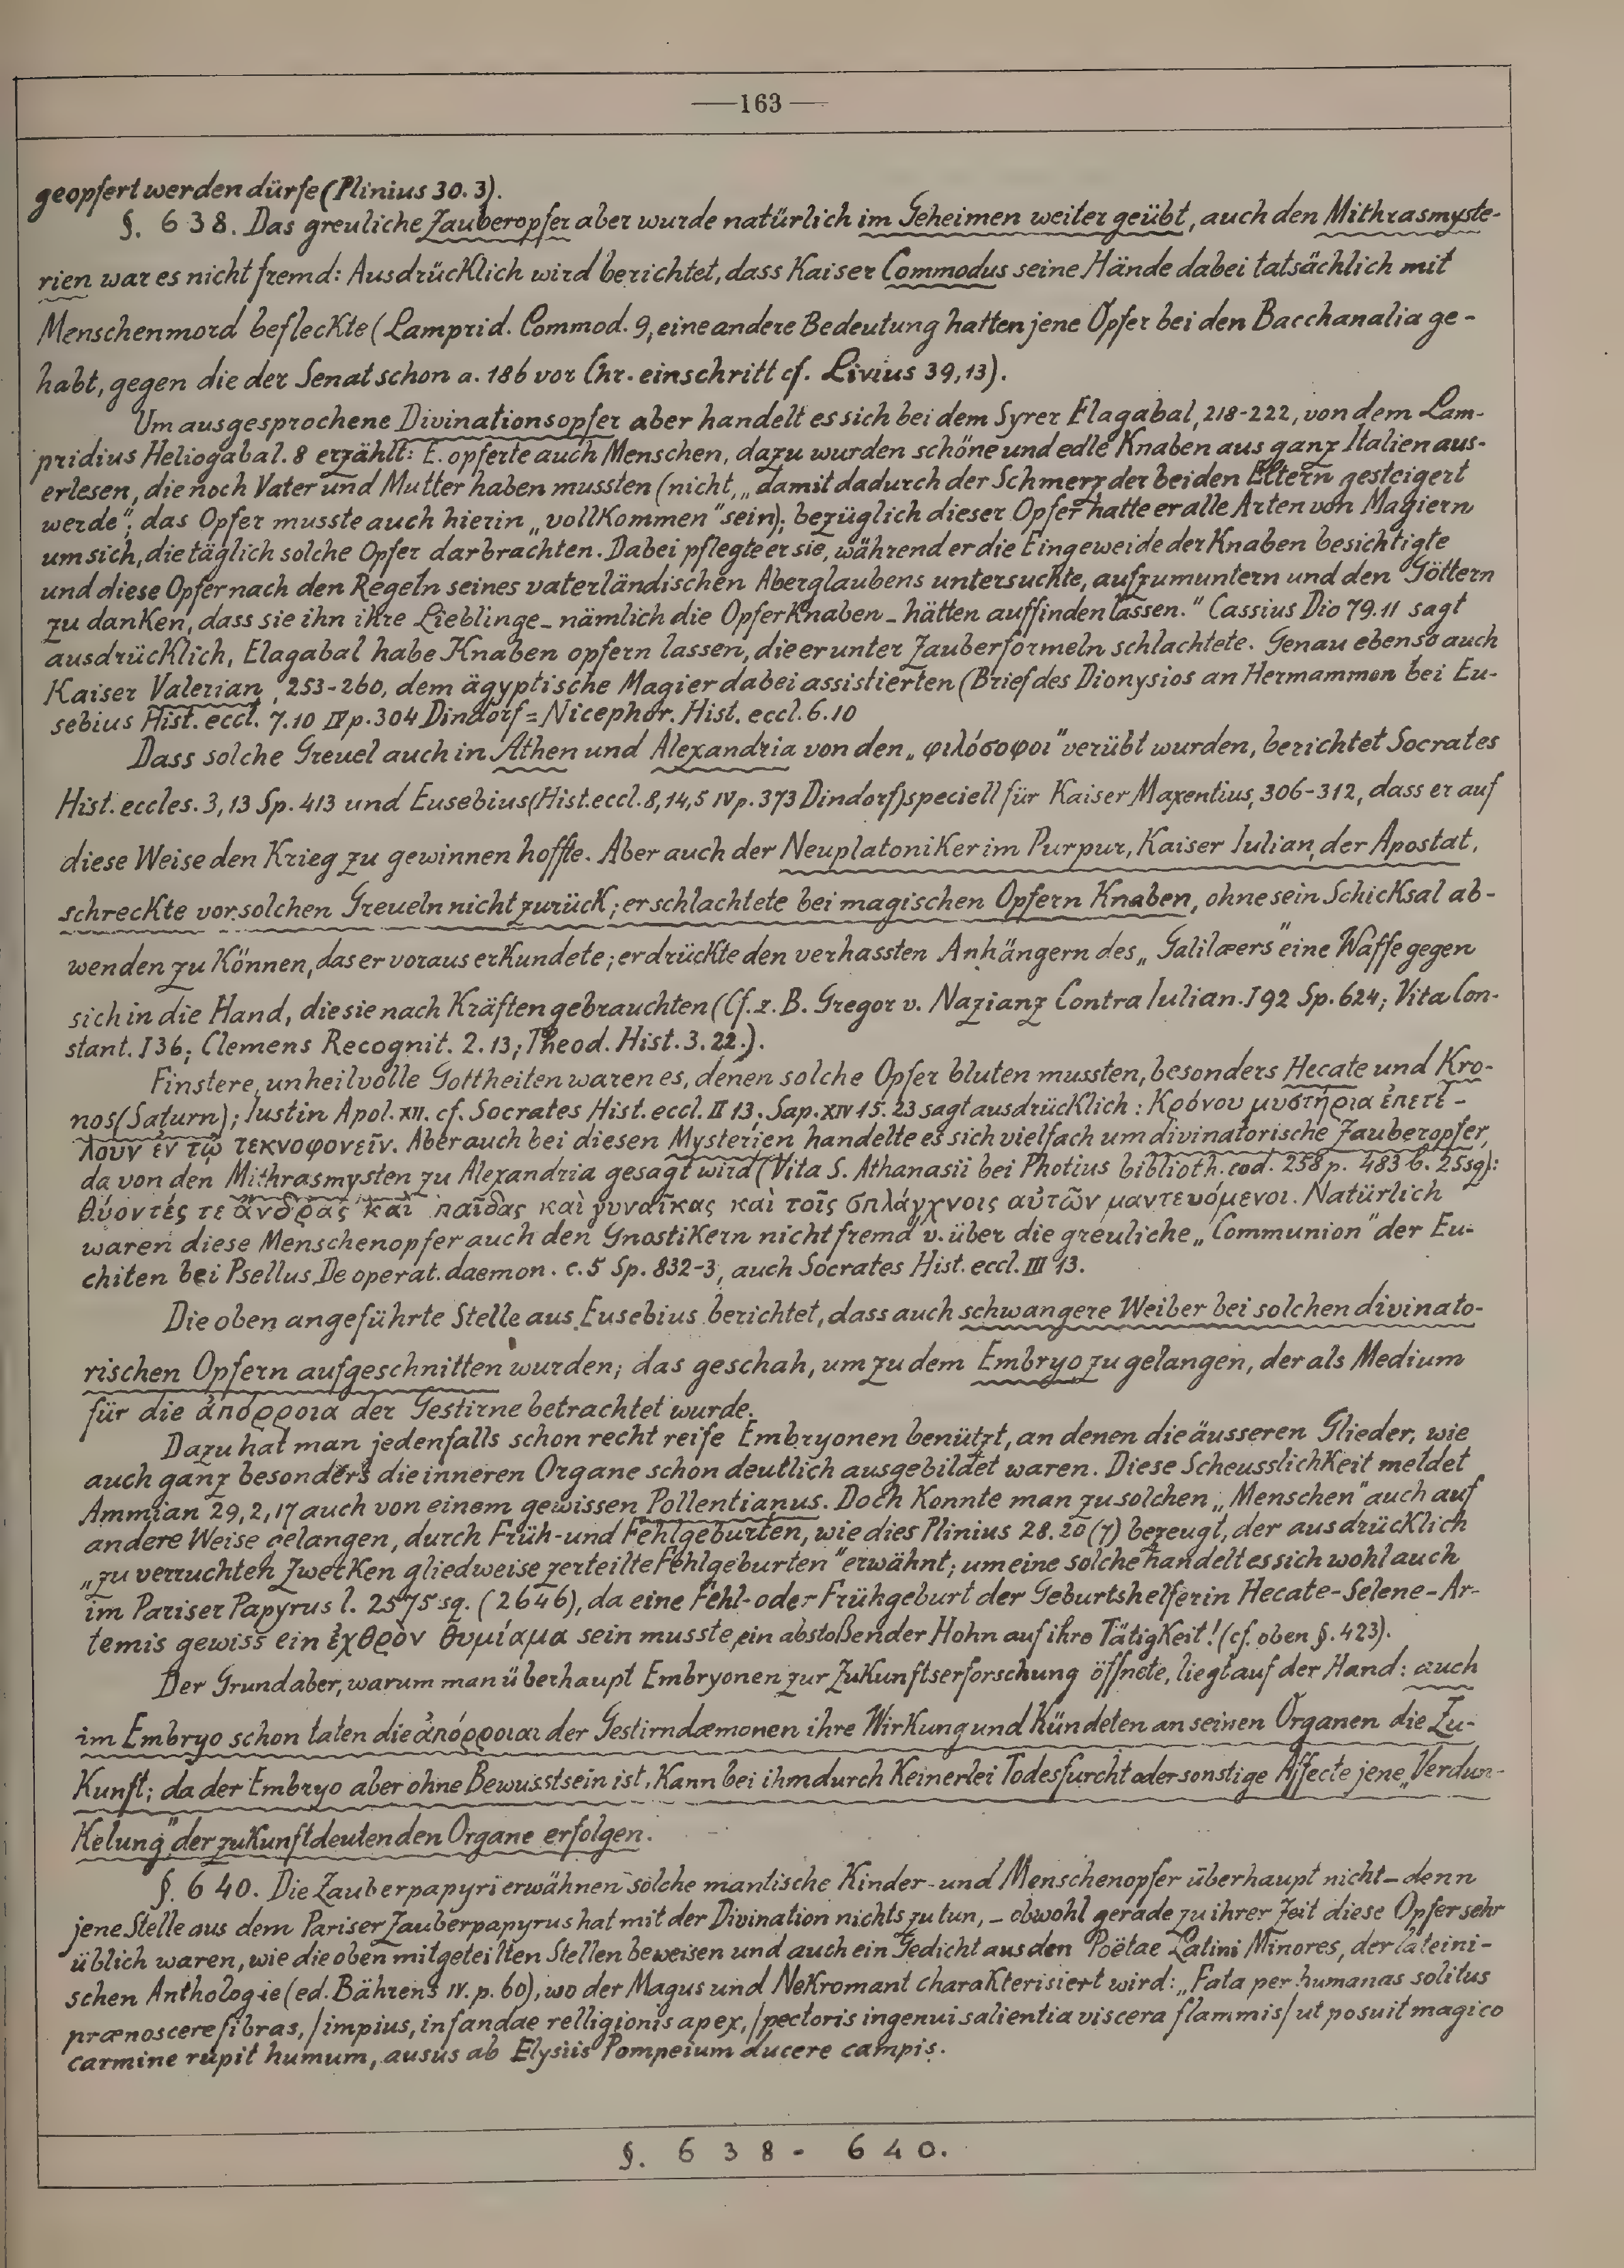 —163—
geopfert werden dürfe (Plinius 30.3).
§. 638. Das greuliche Zauberopfer aber wurde natürlich im Geheimen weiter geübt, auch den Mithrasmyste-
rien war es nicht fremd: Ausdrücklich wird berichtet, dass Kaiser Commodus seine Hände dabei tatsächlich mit
Menschenmord befleckte (Lamprid. Commod. 9, eine andere Bedeutung hatten jene Opfer bei den Bacchanalia ge-
habt, gegen die der Senat schon a. 186 vor Chr. einschritt cf. Livius 39,13).
Um ausgesprochene Divinationsopfer aber handelt es sich bei dem Syrer Elagabal, 218-222, von dem Lam-
pridius Heliogabal. 8 erzählt: E. opferte auch Menschen, dazu wurden schöne und edle Knaben aus ganz Italien aus-
erlesen, die noch Vater und Mutter haben mussten (nicht, „damit dadurch der Schmerz der beiden Eltern gesteigert
werde“; das Opfer musste auch hierin „vollkommen“ sein); bezüglich dieser Opfer hatte er alle Arten von Magiern
um sich, die täglich solche Opfer darbrachten. Dabei pflegte er sie, während er die Eingeweide der Knaben besichtigte
und diese Opfer nach den Regeln seines vaterländischen Aberglaubens untersuchte, aufzumuntern und den Göttern
zu danken, dass sie ihn ihre Lieblinge – nämlich die Opferknaben – hätten auffinden lassen.“ Cassius Dio 79.11 sagt
ausdrücklich, Elagabal habe Knaben opfern lassen, die er unter Zauberformeln schlachtete. Genau ebenso auch
Kaiser Valerian, 253-260, dem ägyptische Magier dabei assistierten (Brief des Dionysios an Hermammon bei Eu-
sebius Hist. eccl. 7.10 IV p. 304 Dindorf = Nicephor. Hist. eccl. 6.10
Dass solche Greuel auch in Athen und Alexandria von den „φιλόσοφοι“ verübt wurden, berichtet Socrates
Hist. eccles. 3,13 Sp. 413 und Eusebius (Hist. eccl. 8,14,5 IV p. 373 Dindorf) speciell für Kaiser Maxentius, 306-312, dass er auf
diese Weise den Krieg zu gewinnen hoffte. Aber auch der Neuplatoniker im Purpur, Kaiser Iulian, der Apostat,
schreckte vor solchen Greueln nicht zurück; er schlachtete bei magischen Opfern Knaben, ohne sein Schicksal ab-
wenden zu können, das er voraus erkundete; er drückte den verhassten Anhängern des „Galilæers“ eine Waffe gegen
sich in die Hand, die sie nach Kräften gebrauchten (Cf. z. B. Gregor v. Nazianz Contra Iulian. I 92 Sp. 624; Vita Con-
stant. I 36; Clemens Recognit. 2.13; Theod. Hist. 3.22.).
Finstere, unheilvolle Gottheiten waren es, denen solche Opfer bluten mussten, besonders Hecate und Kro-
nos (Saturn); Iustin Apol. XII. cf. Socrates Hist. eccl. II 13; Sap. XIV 15. 23 sagt ausdrücklich: Κρόνου μυστήρια ἐπετέ-
λουν ἐν τῷ τεκνοφονεῖν. Aber auch bei diesen Mysterien handelte es sich vielfach um divinatorische Zauberopfer,
da von den Mithrasmysten zu Alexandria gesagt wird (Vita S. Athanasii bei Photius biblioth. cod. 258 p. 483 b. 25 sq):
θύοντές τε ἄνδρας καὶ παῖδας καὶ γυναῖκας καὶ τοῖς σπλάγχνοις αὐτῶν μαντευόμενοι. Natürlich
waren diese Menschenopfer auch den Gnostikern nicht fremd v. über die greuliche „Communion“ der Eu-
chiten bei Psellus De operat. daemon. c. 5 Sp. 832-3, auch Socrates Hist. eccl. III 13.
Die oben angeführte Stelle aus Eusebius berichtet, dass auch schwangere Weiber bei solchen divinato-
rischen Opfern aufgeschnitten wurden; das geschah, um zu dem Embryo zu gelangen, der als Medium
für die ἀπόρροια der Gestirne betrachtet wurde.
Dazu hat man jedenfalls schon recht reife Embryonen benützt, an denen die äusseren Glieder, wie
auch ganz besonders die inneren Organe schon deutlich ausgebildet waren. Diese Scheusslichkeit meldet
Ammian 29,2,17 auch von einem gewissen Pollentianus. Doch konnte man zu solchen „Menschen“ auch auf
andere Weise gelangen, durch Früh- und Fehlgeburten, wie dies Plinius 28.20 (7) bezeugt, der ausdrücklich
„zu verruchten Zwecken gliedweise zerteilte Fehlgeburten“ erwähnt; um eine solche handelt es sich wohl auch
im Pariser Papyrus l. 2575 sq. (2646), da eine Fehl- oder Frühgeburt der Geburtshelferin Hecate-Selene-Ar-
temis gewiss ein ἐχθρὸν θυμίαμα sein musste, ein abstoßender Hohn auf ihre Tätigkeit! (cf. oben §. 423).
Der Grund aber, warum man überhaupt Embryonen zur Zukunftserforschung öffnete, liegt auf der Hand: auch
im Embryo schon taten die ἀπόρροιαι der Gestirndæmonen ihre Wirkung und kündeten an seinen Organen die Zu-
kunft; da der Embryo aber ohne Bewusstsein ist, kann bei ihm durch keinerlei Todesfurcht oder sonstige Affecte jene „Verdun-
kelung“ der zukunftdeutenden Organe erfolgen.
§. 640. Die Zauberpapyri erwähnen solche mantische Kinder- und Menschenopfer überhaupt nicht – denn
jene Stelle aus dem Pariser Zauberpapyrus hat mit der Divination nichts zu tun, – obwohl gerade zu ihrer Zeit diese Opfer sehr
üblich waren, wie die oben mitgeteilten Stellen beweisen und auch ein Gedicht aus den Poëtae Latini Minores, der lateini-
schen Anthologie (ed. Bährens IV. p. 60), wo der Magus und Nekromant charakterisiert wird: „Fata per humanas solitus
prænoscere fibras, / impius, infandae relligionis apex, / pectoris ingenui salientia viscera flammis / ut posuit magico
carmine rupit humum, ausus ab Elysiis Pompeium ducere campis.
§. 638- 640.